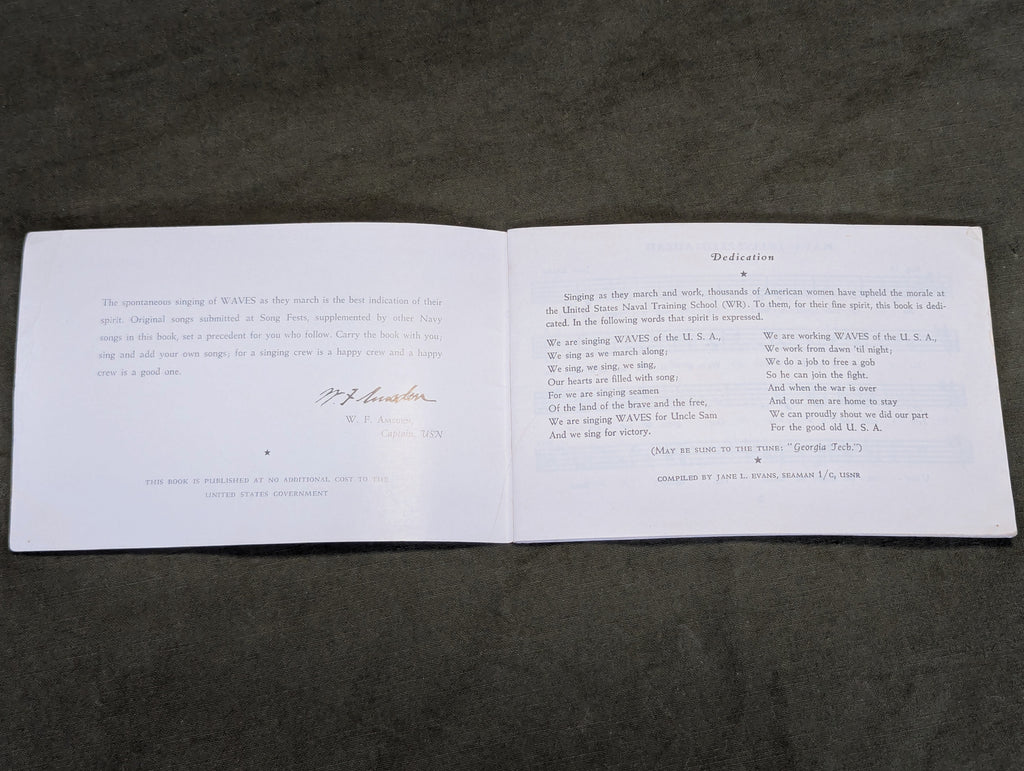 The spontaneous singing of WAVES as they march is the best indication of their
spirit. Original songs submitted at Song Fests, supplemented by other Navy
songs in this book, set a precedent for you who follow. Carry the book with you;
sing and add your own songs; for a singing crew is a happy crew and a happy
crew is a good one.
W. F. Amsden
W. F. Amsden,
Captain, USN
THIS BOOK IS PUBLISHED AT NO ADDITIONAL COST TO THE
UNITED STATES GOVERNMENT
Dedication
Singing as they march and work, thousands of American women have upheld the morale at
the United States Naval Training School (WR). To them, for their fine spirit, this book is dedi-
cated. In the following words that spirit is expressed.
We are singing WAVES of the U. S. A.,
We sing as we march along;
We sing, we sing, we sing,
Our hearts are filled with song;
For we are singing seamen
Of the land of the brave and the free,
We are singing WAVES for Uncle Sam
And we sing for victory.
We are working WAVES of the U. S. A.,
We work from dawn 'til night;
We do a job to free a gob
So he can join the fight.
And when the war is over
And our men are home to stay
We can proudly shout we did our part
For the good old U. S. A.
(MAY BE SUNG TO THE TUNE: "Georgia Tech.")
COMPILED BY JANE L. EVANS, SEAMAN 1/C, USNR